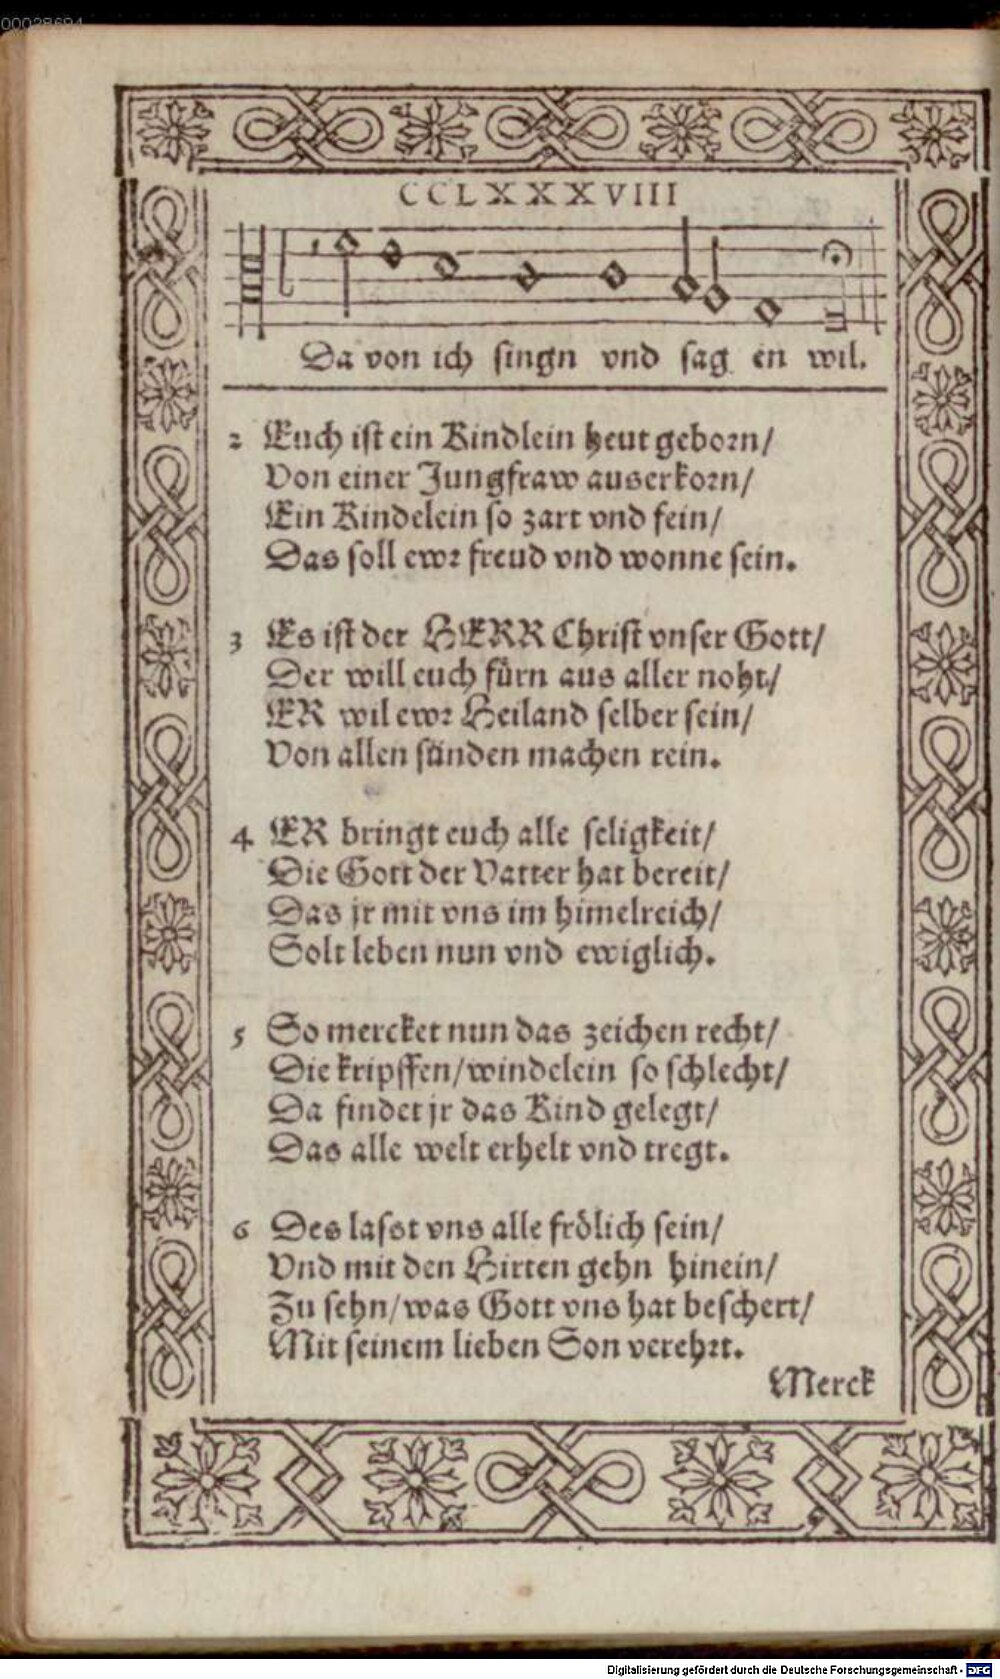 00028694
CCLXXXVIII
Da von ich singn vnd sag en wil.
2 Euch ist ein Kindlein heut geborn/
Von einer Jungfraw auserkorn/
Ein Kindelein so zart vnd fein/
Das soll ewr freud vnd wonne sein.
3 Es ist der HERR Christ vnser Gott/
Der will euch fürn aus aller noht/
ER wil ewr Heiland selber sein/
Von allen sünden machen rein.
4 ER bringt euch alle seligkeit/
Die Gott der Vatter hat bereit/
Das jr mit vns im himelreich/
Solt leben nun vnd ewiglich.
5 So mercket nun das zeichen recht/
Die kripffen/windelein so schlecht/
Da findet jr das Kind gelegt/
Das alle welt erhelt vnd tregt.
6 Des lasst vns alle frölich sein/
Vnd mit den Hirten gehn hinein/
Zu sehn/was Gott vns hat beschert/
Mit seinem lieben Son verehrt.
Merck
Digitalisierung gefördert durch die Deutsche Forschungsgemeinschaft - DFG